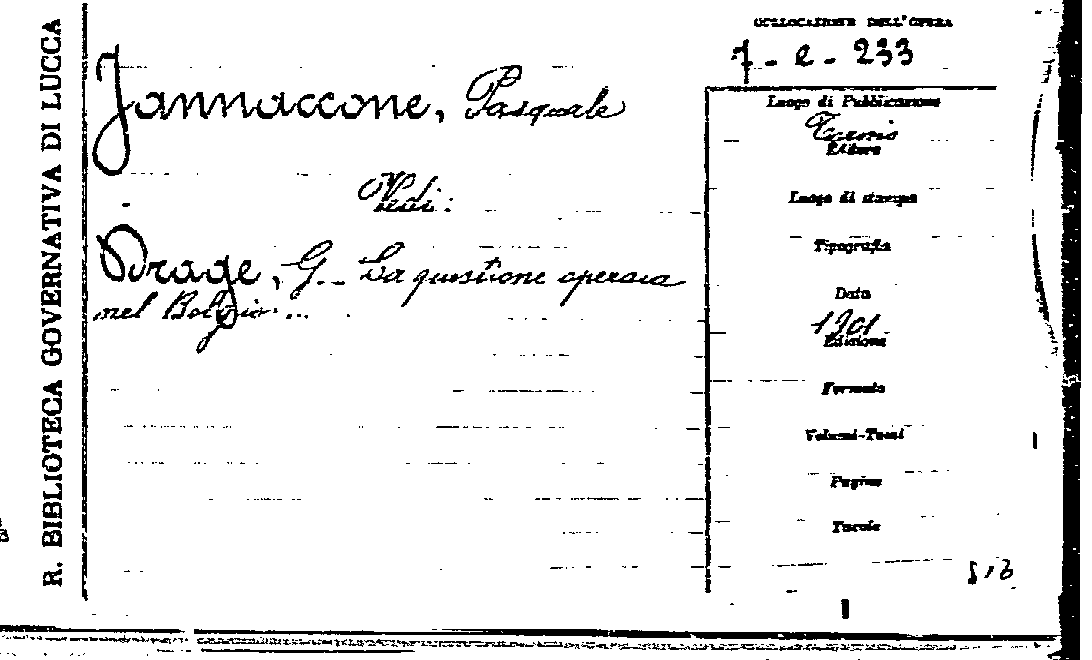 R. BIBLIOTECA GOVERNATIVA DI LUCCA
COLLOCAZIONE DELL'OPERA
7 - e - 233
Jannaccone, Pasquale
Vedi:
Drage, G. - La questione operaia
nel Belgio...
Luogo di Pubblicazione
Torino
Editore
Luogo di stampa
Tipografia
Data
1901
Edizione
Formato
Volumi-Tomi
Pagine
Tavole